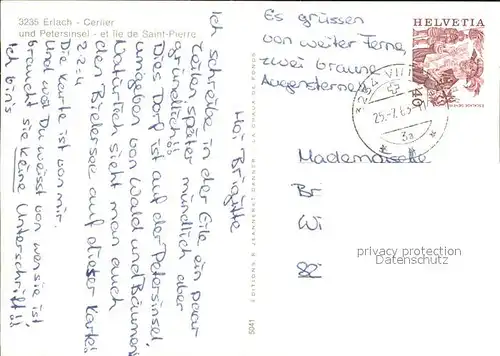 3235 Erlach - Cerlier
und Petersinsel - et île de Saint-Pierre
Hoi Brigitte
Ich schreibe in der Eile ein paar
Zeilen später mündlich aber
gründlich!!
Dies Dorf ist auf der Petersinsel,
umgeben von Wald und Bäumen
Natürlich sieht man auch
den Bielersee auf dieser Karte!
2·2=4
Die Karte ist von mir.
Und wo Du weisst von wem sie ist
braucht sie keine Unterschrift!!
Ich bins
EDITIONS E. JEANNERET DANNER LA CHAUX DE FONDS
5041
Es grüssen
von weiter Ferne,
zwei braune
Augensterne!
HELVETIA
40
25.-7.83.-11
3a
Mademoiselle
Br
Wi
82
privacy protection
Datenschutz